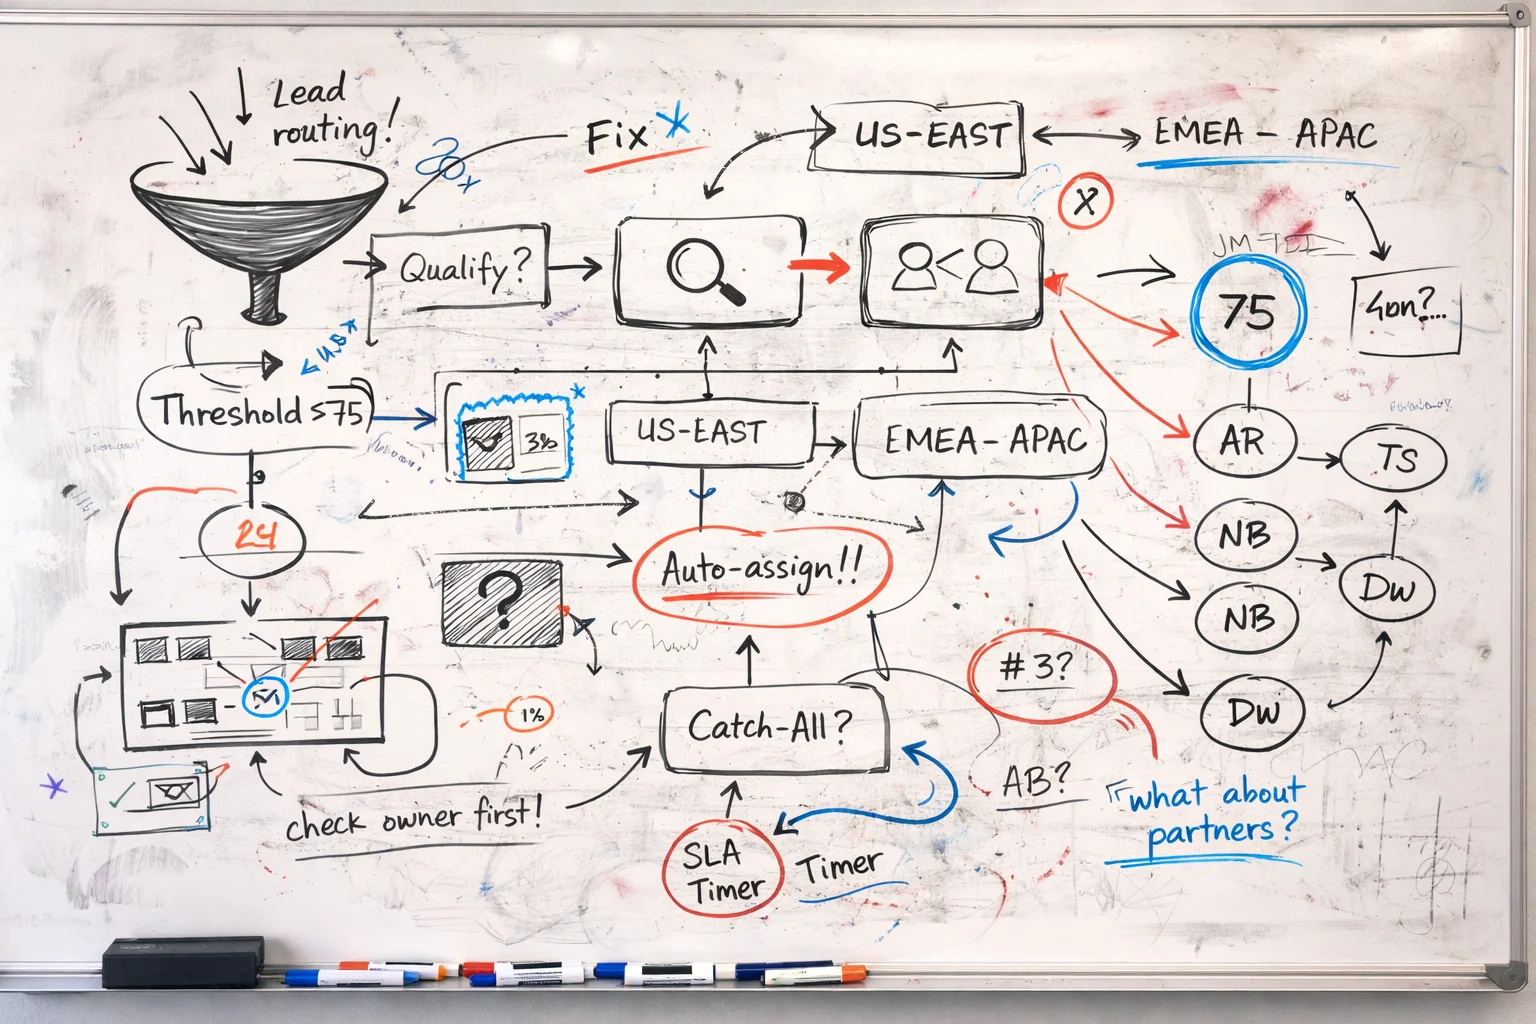 Lead
routing!
Fix
US-EAST
EMEA - APAC
X
20x
Qualify?
75
Threshold ≤75
3%
US-EAST
EMEA - APAC
AR
TS
24
NB
NB
DW
DW
?
Auto-assign!!
# 3?
1%
Catch-All?
AB?
"what about
partners?
check owner first!
SLA
Timer
Timer